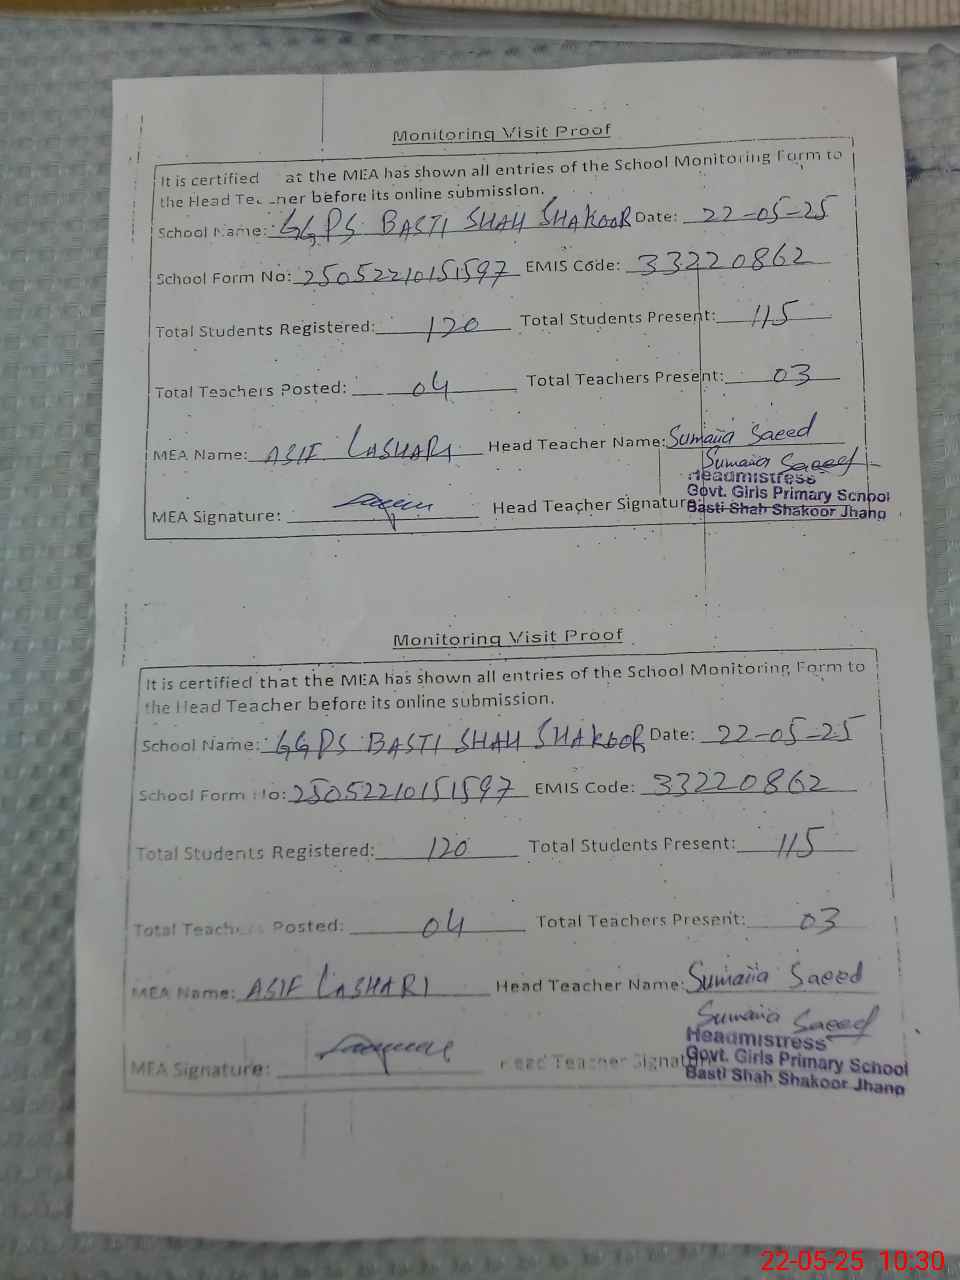 Monitoring Visit Proof
It is certified at the MEA has shown all entries of the School Monitoring Form to
the Head Tea_ner before its online submission.
School Name: GGPS BASTI SHAH SHAKOOR Date: 22-05-25
School Form No: 25052210151597 EMIS Code: 33220862
Total Students Registered: 120 Total Students Present: 115
Total Teachers Posted: 04 Total Teachers Present: 03
MEA Name: ASIF LASHARI Head Teacher Name: Sumaiia Saeed
Sumaiia Saeed
Headmistress
MEA Signature: Head Teacher Signature: Govt. Girls Primary School
Basti Shah Shakoor Jhang
Monitoring Visit Proof
It is certified that the MEA has shown all entries of the School Monitoring Form to
the Head Teacher before its online submission.
School Name: GGPS BASTI SHAH SHAKOOR Date: 22-05-25
School Form No: 25052210151597 EMIS Code: 33220862
Total Students Registered: 120 Total Students Present: 115
Total Teachers Posted: 04 Total Teachers Present: 03
MEA Name: ASIF LASHARI Head Teacher Name: Sumaiia Saeed
Sumaiia Saeed
Headmistress
MEA Signature: Head Teacher Signature Govt. Girls Primary School
Basti Shah Shakoor Jhang
22-05-25 10:30